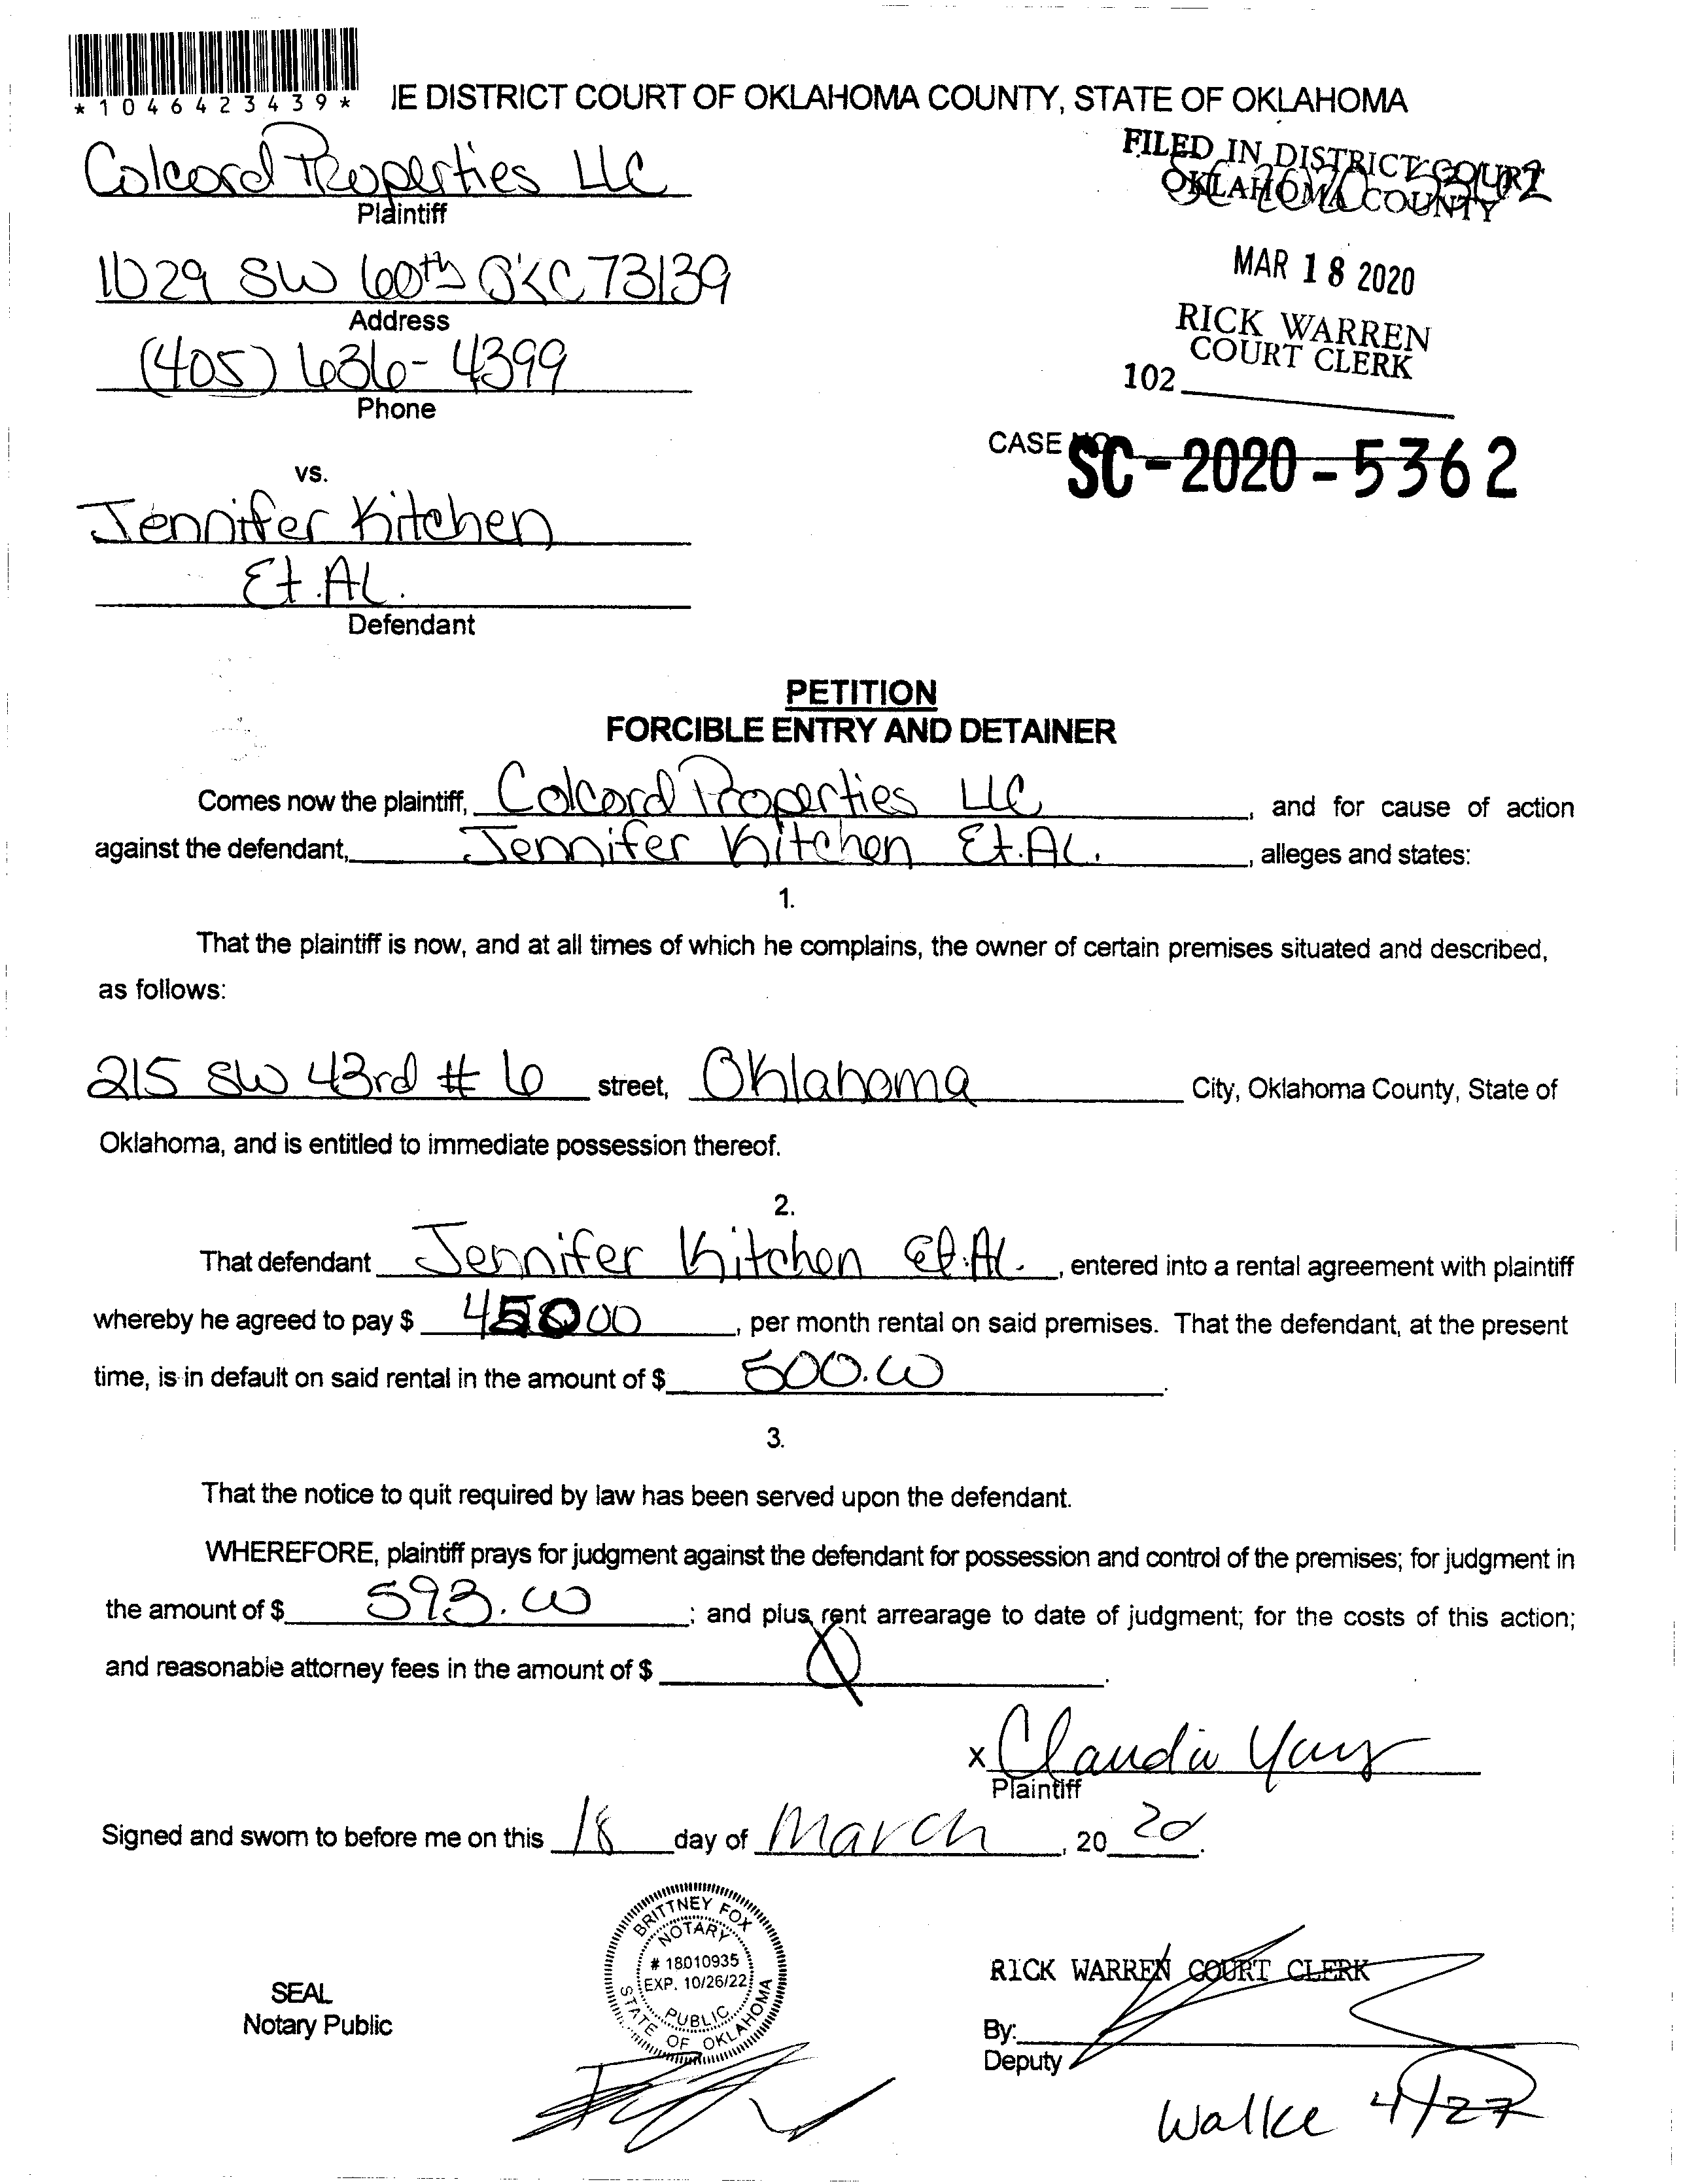 *1046423439*
IE DISTRICT COURT OF OKLAHOMA COUNTY, STATE OF OKLAHOMA
Colcord Properties LLC
Plaintiff
FILED IN DISTRICT COURT
OKLAHOMA COUNTY
SC 2020 5362
1029 SW 60th OKC 73139
Address
MAR 18 2020
RICK WARREN
COURT CLERK
102
(405) 636-4399
Phone
CASE NO. SC-2020-5362
vs.
Jennifer Kitchen
Et.Al.
Defendant
PETITION
FORCIBLE ENTRY AND DETAINER
Comes now the plaintiff, Colcord Properties LLC, and for cause of action
against the defendant, Jennifer Kitchen Et.Al., alleges and states:
1.
That the plaintiff is now, and at all times of which he complains, the owner of certain premises situated and described,
as follows:
215 SW 43rd # 6 street, Oklahoma City, Oklahoma County, State of
Oklahoma, and is entitled to immediate possession thereof.
2.
That defendant Jennifer Kitchen Et.Al., entered into a rental agreement with plaintiff
whereby he agreed to pay $, per month rental on said premises. That the defendant, at the present
time, is in default on said rental in the amount of $ 500.00.
3.
That the notice to quit required by law has been served upon the defendant.
WHEREFORE, plaintiff prays for judgment against the defendant for possession and control of the premises; for judgment in
the amount of $ 593.00; and plus rent arrearage to date of judgment; for the costs of this action;
and reasonable attorney fees in the amount of $.
x Claudia
Plaintiff
Signed and sworn to before me on this 18 day of March, 2020.
BRITTNEY FOX
NOTARY
# 18010935
EXP. 10/26/22
PUBLIC
STATE OF OKLAHOMA
SEAL
Notary Public
RICK WARREN COURT CLERK
By:
Deputy
Walke 4/27